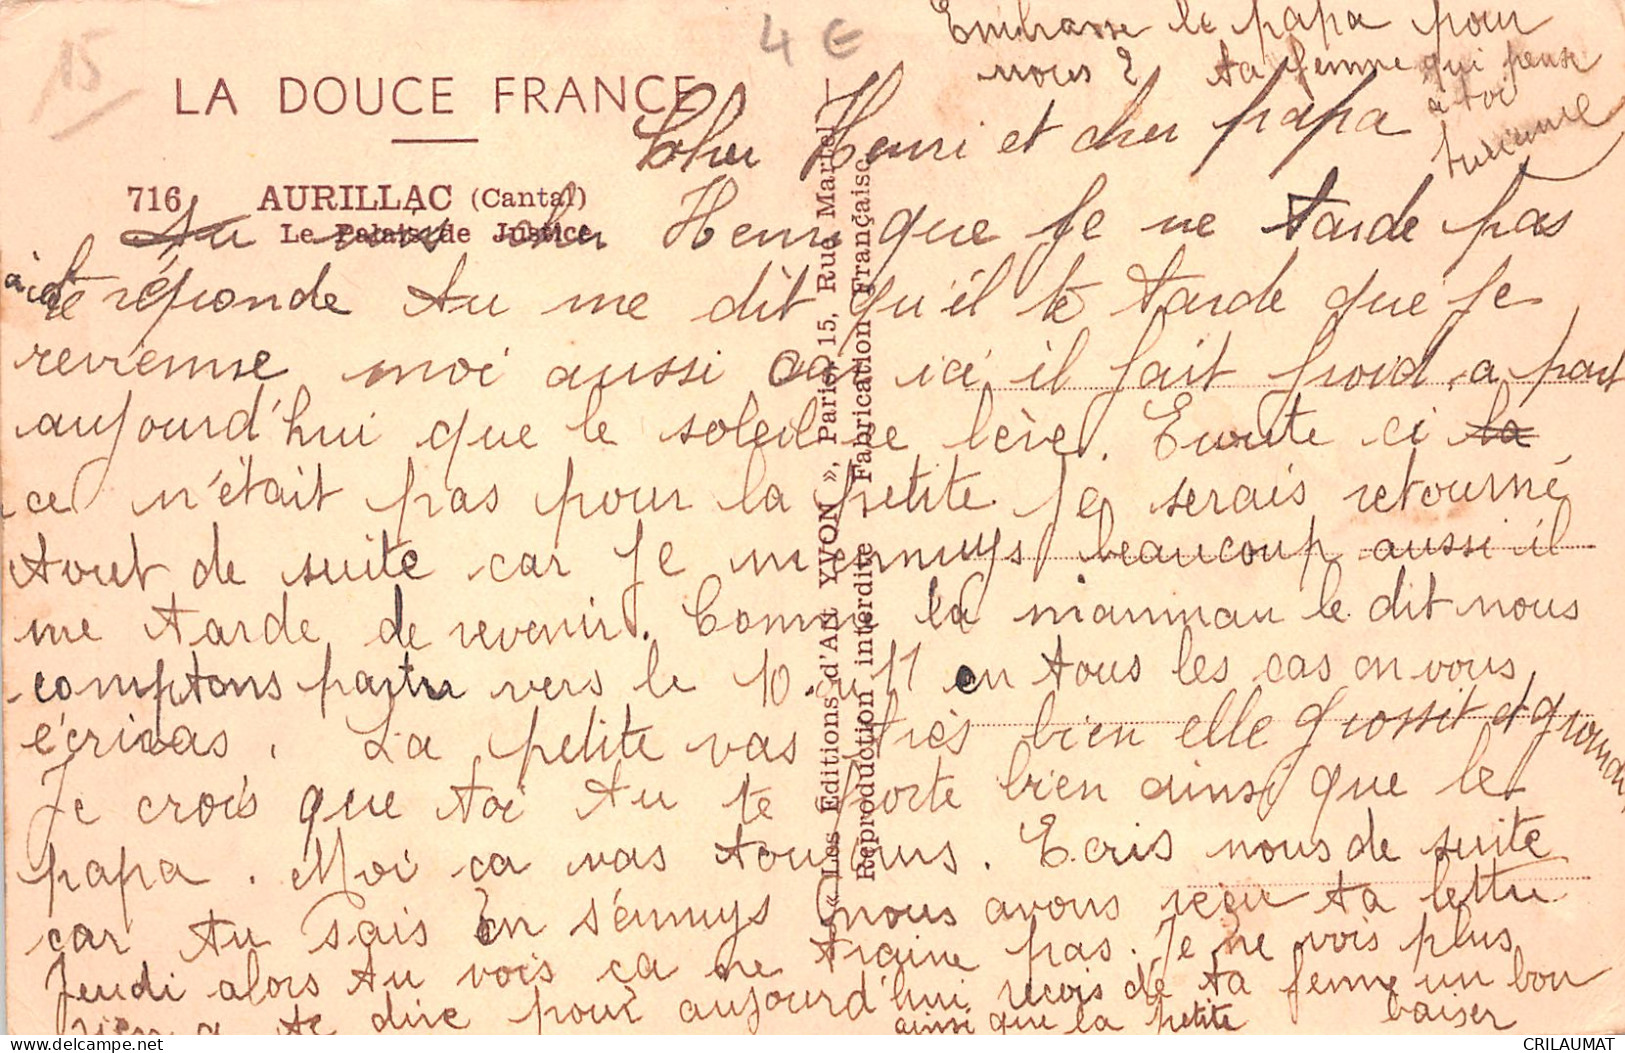 15
4 €
Embrasse le papa pour
nous 2 ta femme qui pense
à toi
LA DOUCE FRANCE
Cher Henri et cher papa
716 AURILLAC (Cantal)
Le Palais de Justice
Tu vois cher Henri que Je ne tarde pas
à te réponde tu me dit qu'il te tarde que Je
revienne moi aussi car ici il fait froid, a part
aujourd'hui que le soleil se lève. Ecoute ci la
ce n'était pas pour la petite Je serais retourné
tout de suite car Je m'ennuys beaucoup aussi il
me tarde de revenir. Comme la manman le dit nous
comptons partir vers le 10. 11 en tous les cas on vous
écrivas. La petite vas très bien elle grossit et grandi,
Je crois que toi tu te porte bien ainsi que le
papa. Moi ça vas toujours. Ecris nous de suite
car tu sais on s'ennuys nous avons reçu ta lettre
Jeudi alors tu vois ça ne traine pas. Je ne vois plus
rien a te dire pour aujourd'hui reçois de ta femme un bon
ainsi que la petite baiser
« Les Editions d'Art YVON », Paris, 15, Rue Martel
Reproduction interdite Fabrication Française
delcampe.net
CRILAUMAT